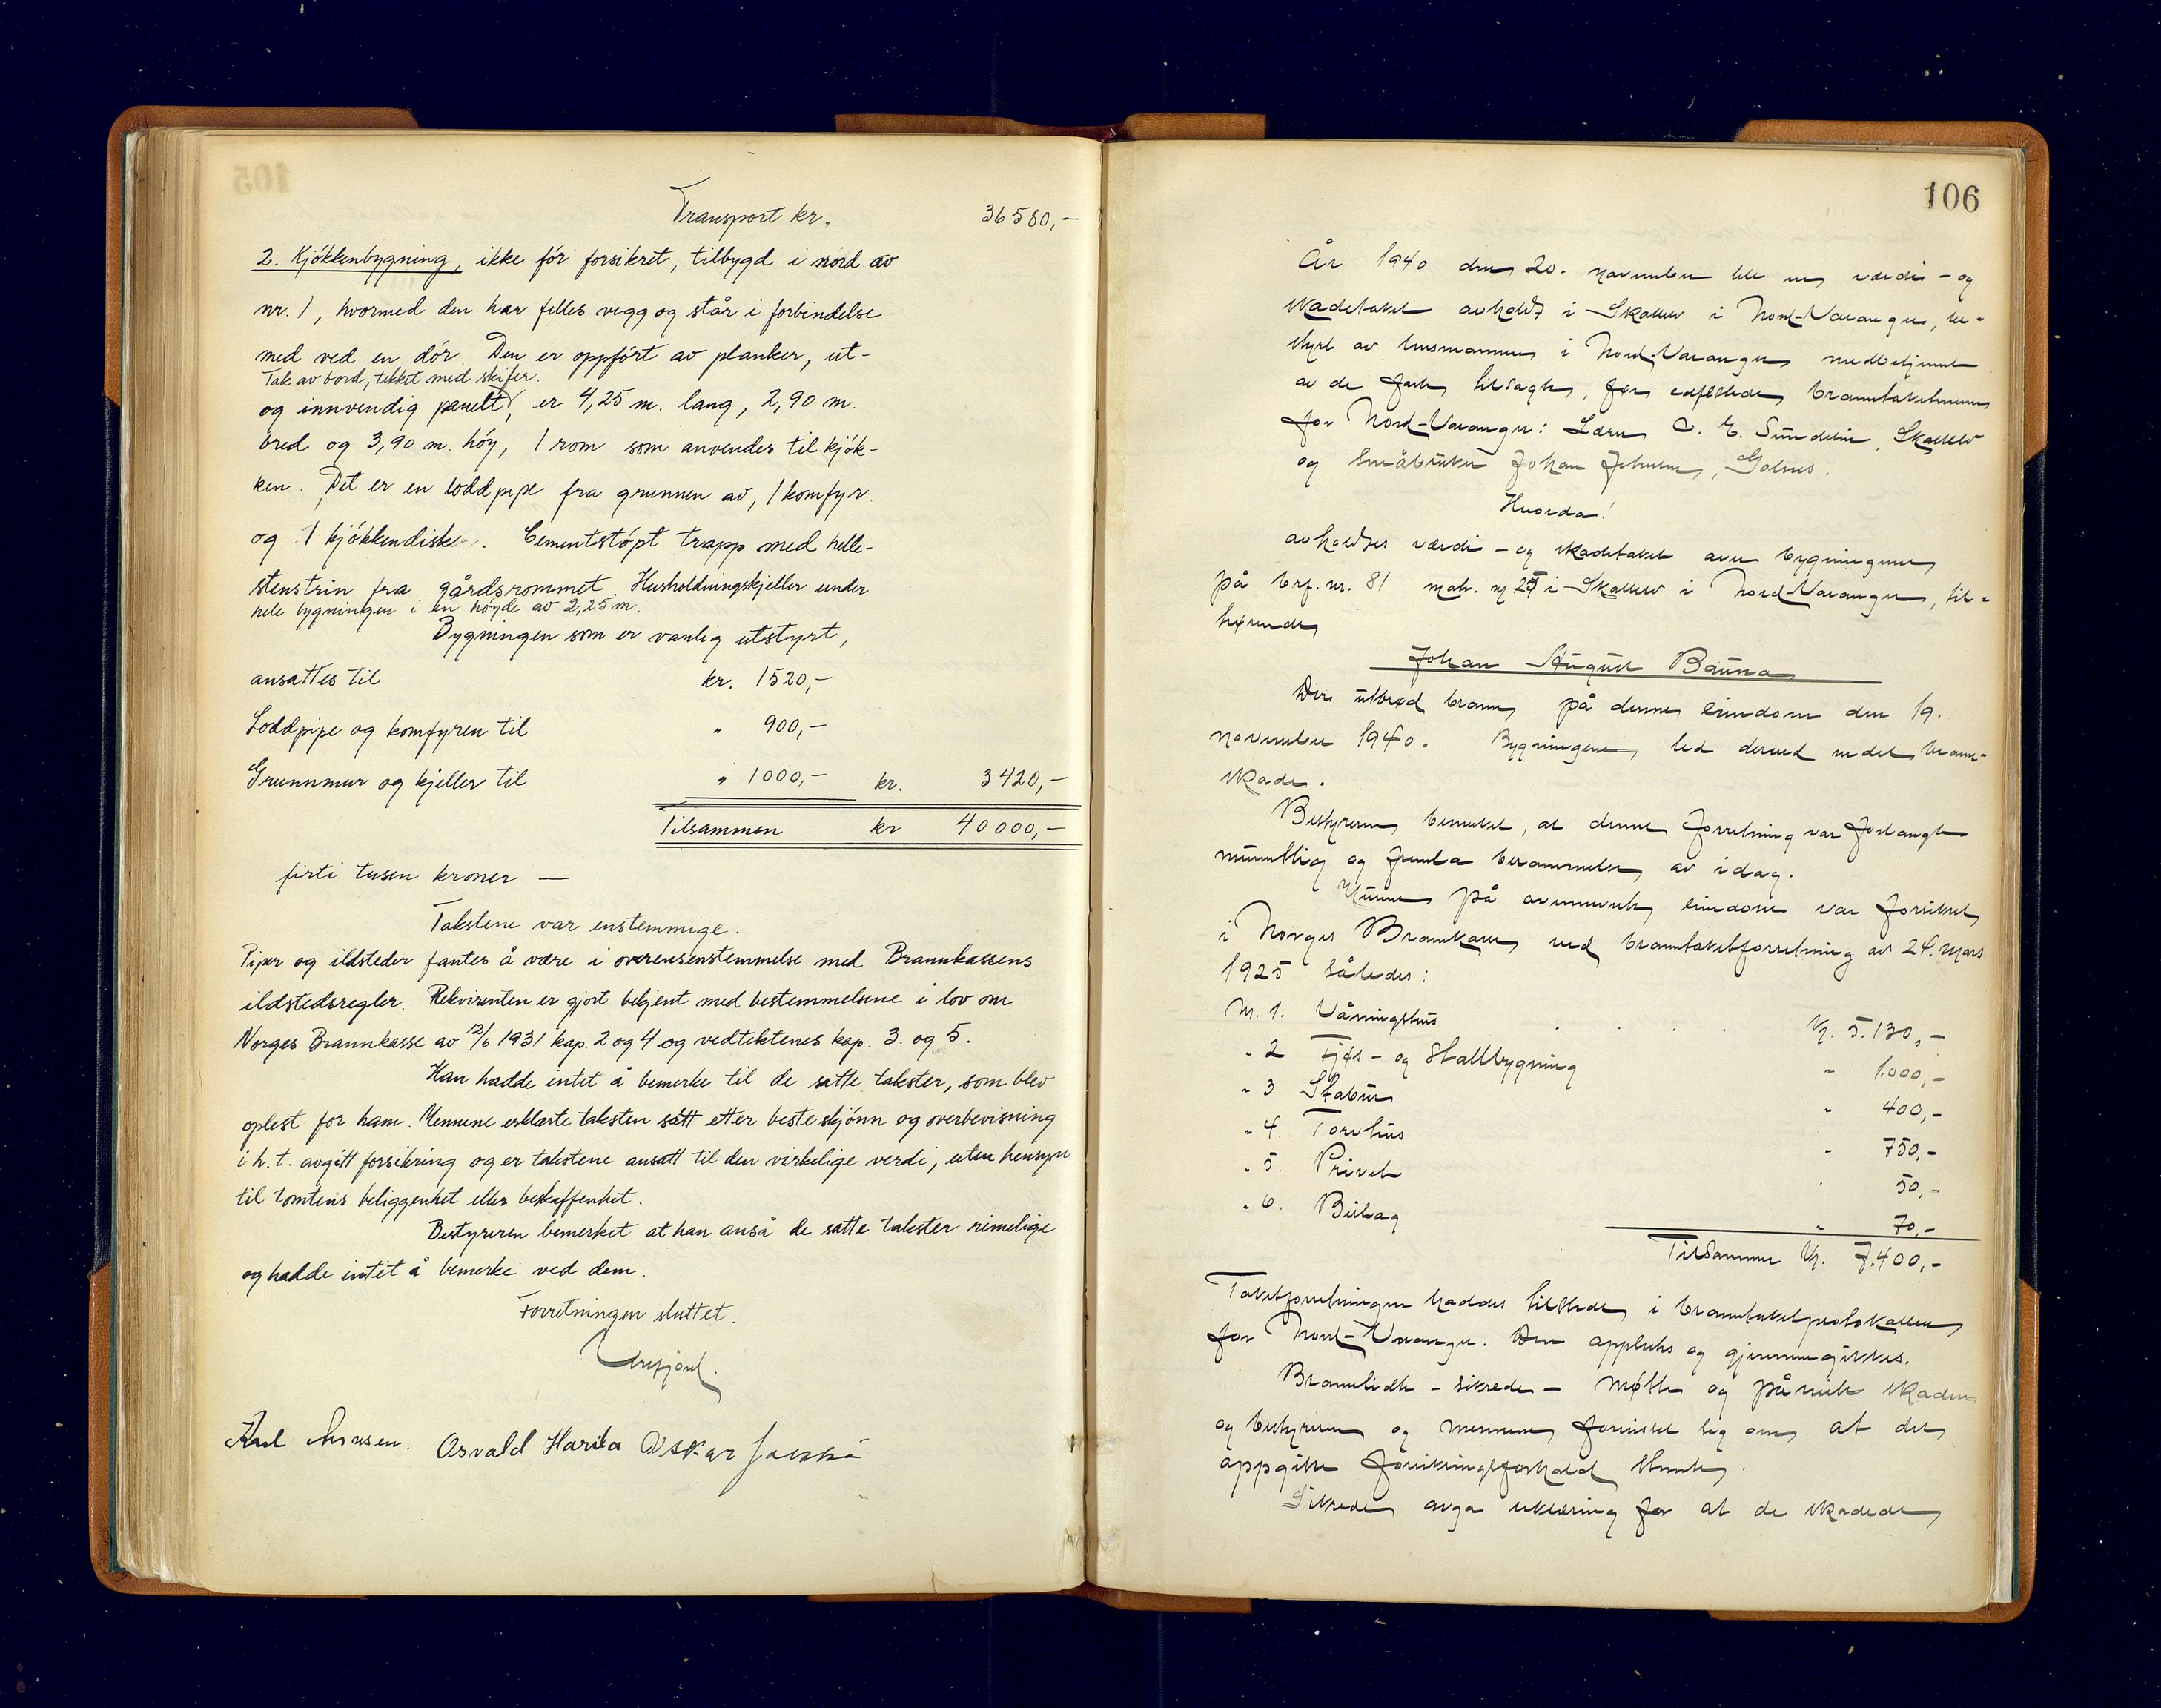 Transport kr. 36580,-
2. Kjøkkenbygning, ikke før forsikret, tilbygd i nord av
nr. 1, hvormed den har felles vegg og står i forbindelse
med ved en dør. Den er oppført av planker, ut-
Tak av bord, tekket med skifer.
og innvendig panelt, er 4,25 m. lang, 2,90 m.
bred og 3,90 m. høy, 1 rom som anvendes til kjøk-
ken. Det er en loddpipe fra grunnen av, 1 komfyr
og 1 kjøkkendisk. Cementstøpt trapp med helle-
stenstrin fra gårdsrommet. Husholdningskjeller under
hele bygningen i en høyde av 2,25 m.
Bygningen som er vanlig utstyrt,
ansattes til kr. 1520,-
Loddpipe og komfyren til " 900,-
Grunnmur og kjeller til " 1000,- kr. 3420,-
Tilsammen kr 40000,-
firti tusen kroner —
Takstene var enstemmige.
Piper og ildsteder fantes å være i overensenstemmelse med Brannkassens
ildstedsregler. Rekvirenten er gjort bekjent med bestemmelsene i lov om
Norges Brannkasse av 12/6 1931 kap. 2 og 4 og vedtektenes kap. 3. og 5.
Han hadde intet å bemerke til de satte takster, som blev
oplest for ham. Mennene erklærte taksten satt etter beste skjønn og overbevisning
i h. t. avgitt forsikring og er takstene ansatt til den virkelige verdi, uten hensyn
til tomtens beliggenhet eller beskaffenhet.
Bestyreren bemerket at han anså de satte takster rimelige
og hadde intet å bemerke ved dem.
Forretningen sluttet.
Karl Osvald Harila Oskar
106
År 1940 den 20. november ble en værdi- og
skadetakst avholdt i Skallelv i Nord-Varanger, be-
styrt av lensmannen i Nord-Varanger medbetjent
av de faste tilsagte, før edfestede branntakstmenn
for Nord-Varanger: Lærer C. E. Sundelin, Skallelv
og småbruker Johan Johnsen, Golnes.
Hvorda!
avholdtes værdi- og skadetakst over bygningene
på brf. nr. 81 matr. nr 25 i Skallelv i Nord-Varanger, til-
hørende
Johan August Bauna
Der utbrød brann på denne eiendom den 19.
november 1940. Bygningene led derved endel brann-
skade.
Bestyreren bemerket, at denne forretning var forlangt
muntlig og fremla berammelse av idag.
Husene på ovennevnte eiendom var forsikret
i Norges Brannkasse ved branntakstforretning av 24. mars
1925 således:
Nr. 1. Våningshus Kr. 5.130,-
" 2 Fjøs- og Stallbygning " 1.000,-
" 3 Stabur " 400,-
" 4. Torvhus " 750,-
" 5. Privet " 50,-
" 6. Bislag " 70,-
Tilsammen Kr. 7.400,-
Takstforretningen haddes tilstede i branntakstprotokollen
for Nord-Varanger. Den opplestes og gjennemgikkes.
Brannlidte - sikrede - møtte og påviste skaden
og bestyreren og mennene forvisset seg om, at det
oppgitte forsikringsforhold stemte.
Sikrede avga erklæring for at de skadede